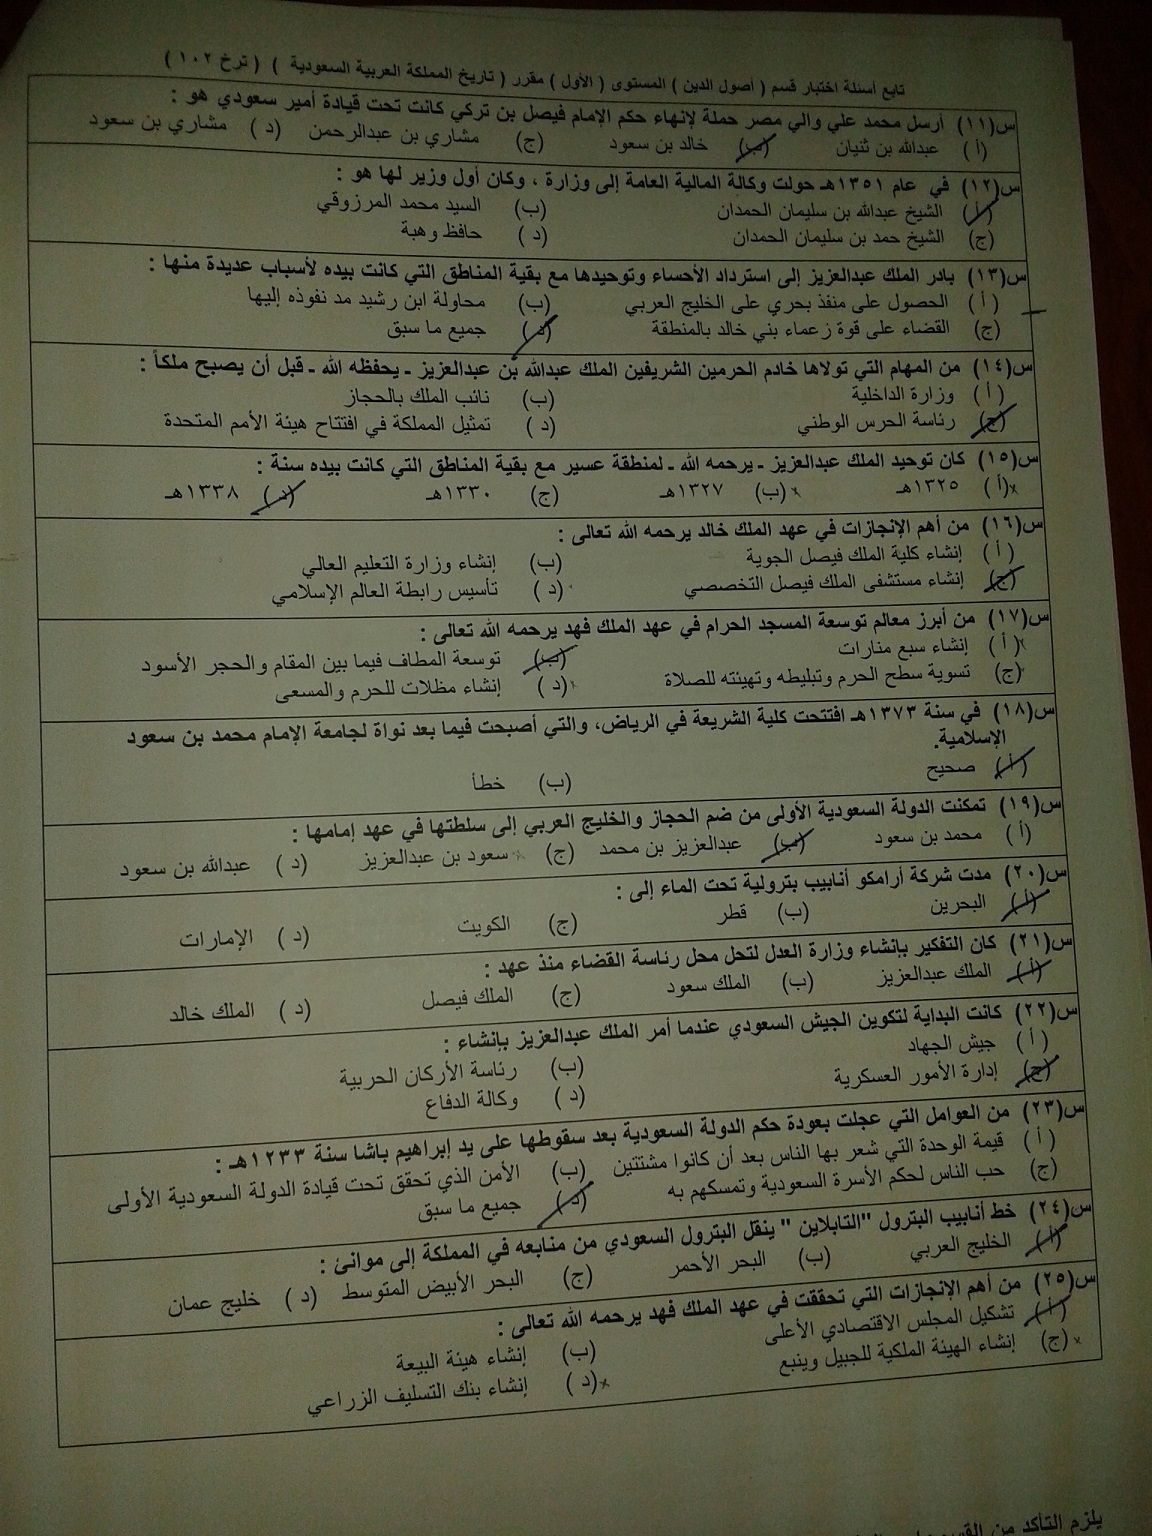 تابع أسئلة اختبار قسم ( أصول الدين ) المستوى ( الأول ) مقرر ( تاريخ المملكة العربية السعودية ) ( ترخ ١٠٢ )
س(١١) أرسل محمد علي والي مصر حملة لإنهاء حكم الإمام فيصل بن تركي كانت تحت قيادة أمير سعودي هو :
(أ ) عبدالله بن ثنيان (ب) خالد بن سعود (ج) مشاري بن عبدالرحمن (د ) مشاري بن سعود
س(١٢) في عام ١٣٥١هـ حولت وكالة المالية العامة إلى وزارة ، وكان أول وزير لها هو :
(أ ) الشيخ عبدالله بن سليمان الحمدان (ب) السيد محمد المرزوقي
(ج) الشيخ حمد بن سليمان الحمدان (د ) حافظ وهبة
س(١٣) بادر الملك عبدالعزيز إلى استرداد الأحساء وتوحيدها مع بقية المناطق التي كانت بيده لأسباب عديدة منها :
(أ ) الحصول على منفذ بحري على الخليج العربي (ب) محاولة ابن رشيد مد نفوذه إليها
(ج) القضاء على قوة زعماء بني خالد بالمنطقة (د ) جميع ما سبق
س(١٤) من المهام التي تولاها خادم الحرمين الشريفين الملك عبدالله بن عبدالعزيز ـ يحفظه الله ـ قبل أن يصبح ملكاً :
(أ ) وزارة الداخلية (ب) نائب الملك بالحجاز
(ج) رئاسة الحرس الوطني (د ) تمثيل المملكة في افتتاح هيئة الأمم المتحدة
س(١٥) كان توحيد الملك عبدالعزيز ـ يرحمه الله ـ لمنطقة عسير مع بقية المناطق التي كانت بيده سنة :
×(أ ) ١٣٢٥هـ ×(ب) ١٣٢٧هـ (ج) ١٣٣٠هـ (د ) ١٣٣٨هـ
س(١٦) من أهم الإنجازات في عهد الملك خالد يرحمه الله تعالى :
(أ ) إنشاء كلية الملك فيصل الجوية (ب) إنشاء وزارة التعليم العالي
(ج) إنشاء مستشفى الملك فيصل التخصصي (د ) تأسيس رابطة العالم الإسلامي
س(١٧) من أبرز معالم توسعة المسجد الحرام في عهد الملك فهد يرحمه الله تعالى :
×(أ ) إنشاء سبع منارات (ب) توسعة المطاف فيما بين المقام والحجر الأسود
(ج) تسوية سطح الحرم وتبليطه وتهيئته للصلاة ×(د ) إنشاء مظلات للحرم والمسعى
س(١٨) في سنة ١٣٧٣هـ افتتحت كلية الشريعة في الرياض، والتي أصبحت فيما بعد نواة لجامعة الإمام محمد بن سعود
الإسلامية.
(أ ) صحيح (ب) خطأ
س(١٩) تمكنت الدولة السعودية الأولى من ضم الحجاز والخليج العربي إلى سلطتها في عهد إمامها :
(أ ) محمد بن سعود (ب) عبدالعزيز بن محمد (ج) × سعود بن عبدالعزيز (د ) عبدالله بن سعود
س(٢٠) مدت شركة أرامكو أنابيب بترولية تحت الماء إلى :
(أ ) البحرين (ب) قطر (ج) الكويت (د ) الإمارات
س(٢١) كان التفكير بإنشاء وزارة العدل لتحل محل رئاسة القضاء منذ عهد :
(أ ) الملك عبدالعزيز (ب) الملك سعود (ج) الملك فيصل (د ) الملك خالد
س(٢٢) كانت البداية لتكوين الجيش السعودي عندما أمر الملك عبدالعزيز بإنشاء :
(أ ) جيش الجهاد (ب) رئاسة الأركان الحربية
(ج) إدارة الأمور العسكرية (د ) وكالة الدفاع
س(٢٣) من العوامل التي عجلت بعودة حكم الدولة السعودية بعد سقوطها على يد إبراهيم باشا سنة ١٢٣٣هـ :
(أ ) قيمة الوحدة التي شعر بها الناس بعد أن كانوا مشتتين (ب) الأمن الذي تحقق تحت قيادة الدولة السعودية الأولى
(ج) حب الناس لحكم الأسرة السعودية وتمسكهم به (د ) جميع ما سبق
س(٢٤) خط أنابيب البترول "التابلاين " ينقل البترول السعودي من منابعه في المملكة إلى موانئ :
(أ ) الخليج العربي (ب) البحر الأحمر (ج) البحر الأبيض المتوسط (د ) خليج عمان
س(٢٥) من أهم الإنجازات التي تحققت في عهد الملك فهد يرحمه الله تعالى :
(أ ) تشكيل المجلس الاقتصادي الأعلى (ب) إنشاء هيئة البيعة
×(ج) إنشاء الهيئة الملكية للجبيل وينبع ×(د ) إنشاء بنك التسليف الزراعي
يلزم التأكد من